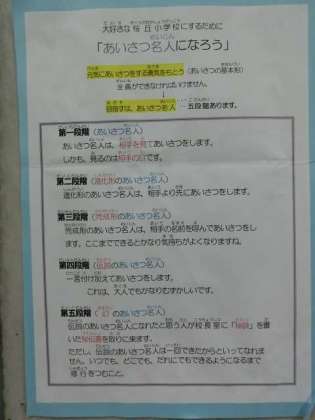 大好きな桜丘小学校にするために
「あいさつ名人になろう」
元気にあいさつをする勇気をもとう（あいさつの基本形）
全員ができなければいけません。
↓
目指すは、あいさつ名人 … 五段階あります。
第一段階（あいさつ名人）
あいさつ名人は、相手を見てあいさつをします。
しかも、見るのは相手の目です。
第二段階（進化形のあいさつ名人）
進化形のあいさつ名人は、相手より先にあいさつをします。
第三段階（完成形のあいさつ名人）
完成形のあいさつ名人は、相手の名前を呼んであいさつをし
ます。ここまでできるとかなり気持ちがよくなりますね。
第四段階（伝説のあいさつ名人）
一言付け加えてあいさつをします。
これは、大人でもかなりむずかしいです。
第五段階（幻のあいさつ名人）
伝説のあいさつ名人になれたと思う人が校長室に「秘訣」を書
いた秘伝書を取りに来ます。
ただし、伝説のあいさつ名人は一回できたからといってなれま
せん。いつでも、どこでも、だれにでもできるようになるまで
修行をつむこと。